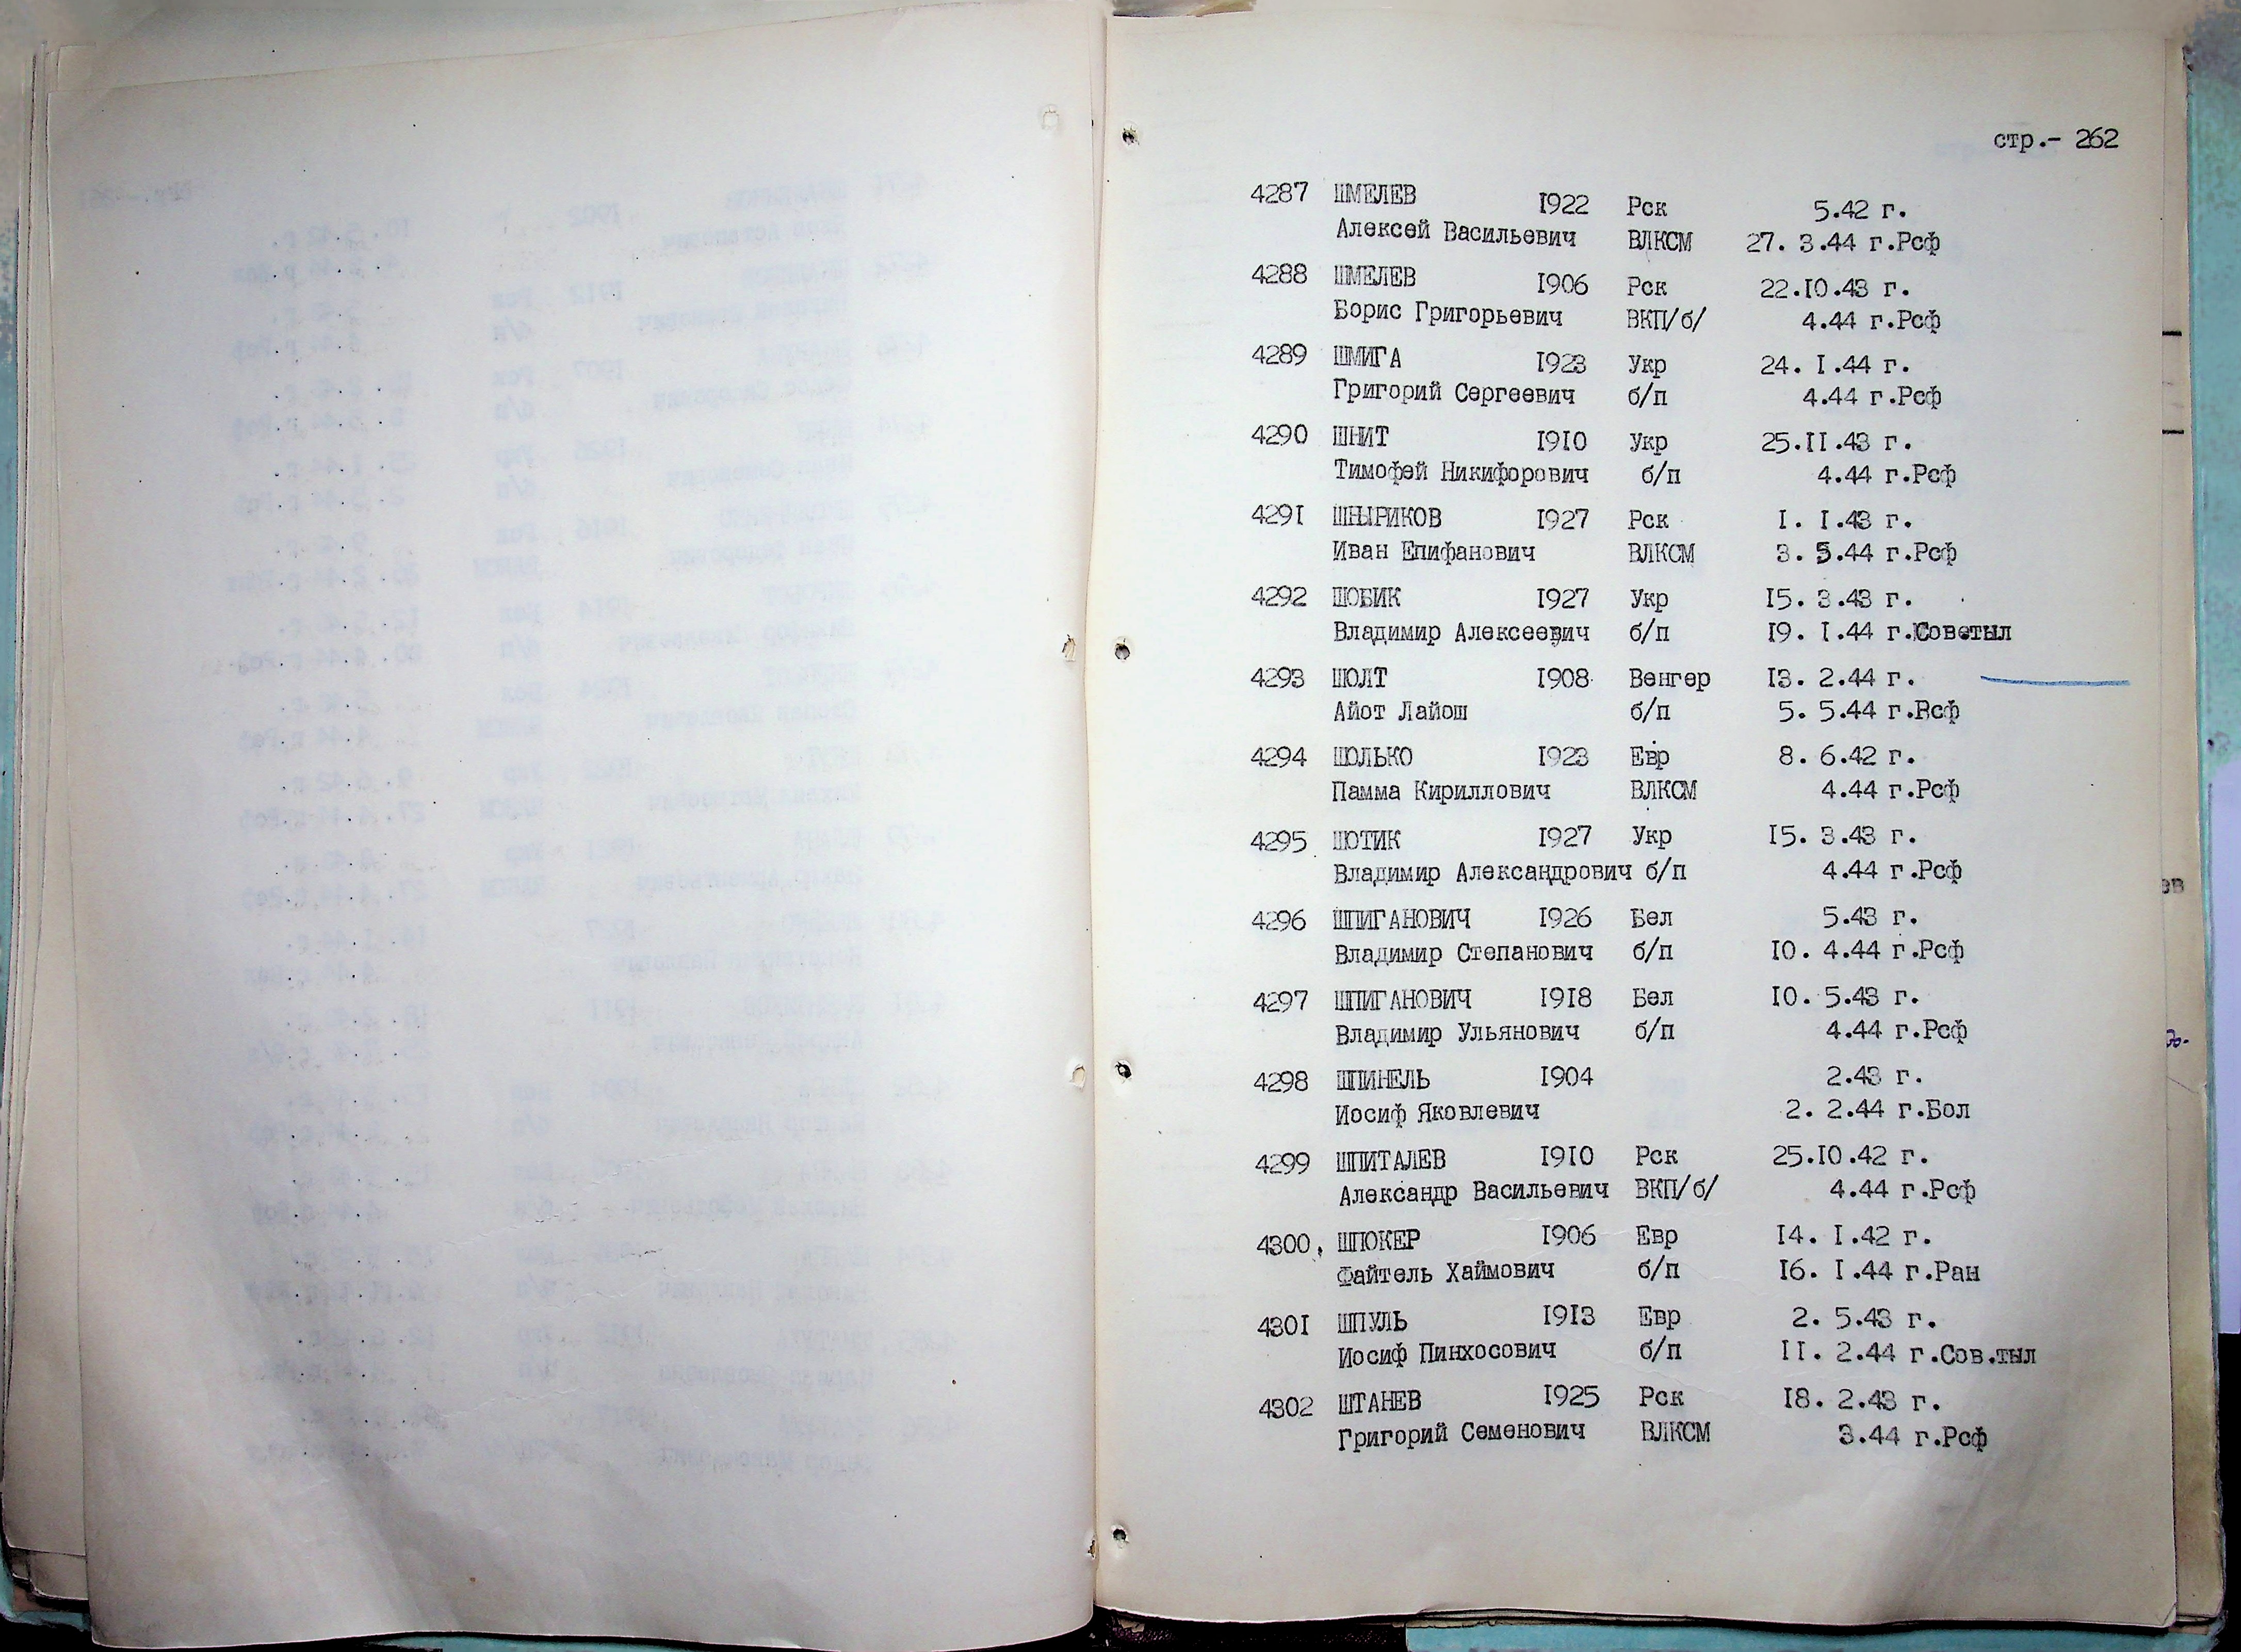 стр.- 262
4287 ШМЕЛЕВ 1922 Рск 5.42 г.
Алексей Васильевич ВЛКСМ 27. 3.44 г.Рсф
4288 ШМЕЛЕВ 1906 Рск 22.10.43 г.
Борис Григорьевич ВКП/б/ 4.44 г.Рсф
4289 ШМИГА 1923 Укр 24. 1.44 г.
Григорий Сергеевич б/п 4.44 г.Рсф
4290 ШНИТ 1910 Укр 25.11.43 г.
Тимофей Никифорович б/п 4.44 г.Рсф
4291 ШНЫРИКОВ 1927 Рск 1. 1.43 г.
Иван Епифанович ВЛКСМ 3. 5.44 г.Рсф
4292 ШОБИК 1927 Укр 15. 3.43 г.
Владимир Алексеевич б/п 19. 1.44 г.Советыл
4293 ШОЛТ 1908 Венгер 13. 2.44 г.
Айот Лайош б/п 5. 5.44 г.Рсф
4294 ШОЛЬКО 1923 Евр 8. 6.42 г.
Памма Кириллович ВЛКСМ 4.44 г.Рсф
4295 ШОТИК 1927 Укр 15. 3.43 г.
Владимир Александрович б/п 4.44 г.Рсф
4296 ШПИГАНОВИЧ 1926 Бел 5.43 г.
Владимир Степанович б/п 10. 4.44 г.Рсф
4297 ШПИГАНОВИЧ 1918 Бел 10. 5.43 г.
Владимир Ульянович б/п 4.44 г.Рсф
4298 ШПИНЕЛЬ 1904 2.43 г.
Иосиф Яковлевич 2. 2.44 г.Бол
4299 ШПИТАЛЕВ 1910 Рск 25.10.42 г.
Александр Васильевич ВКП/б/ 4.44 г.Рсф
4300. ШПОКЕР 1906 Евр 14. 1.42 г.
Файтель Хаймович б/п 16. 1.44 г.Ран
4301 ШПУЛЬ 1913 Евр 2. 5.43 г.
Иосиф Пинхосович б/п 11. 2.44 г.Сов.тыл
4302 ШТАНЕВ 1925 Рск 18. 2.43 г.
Григорий Семенович ВЛКСМ 3.44 г.Рсф